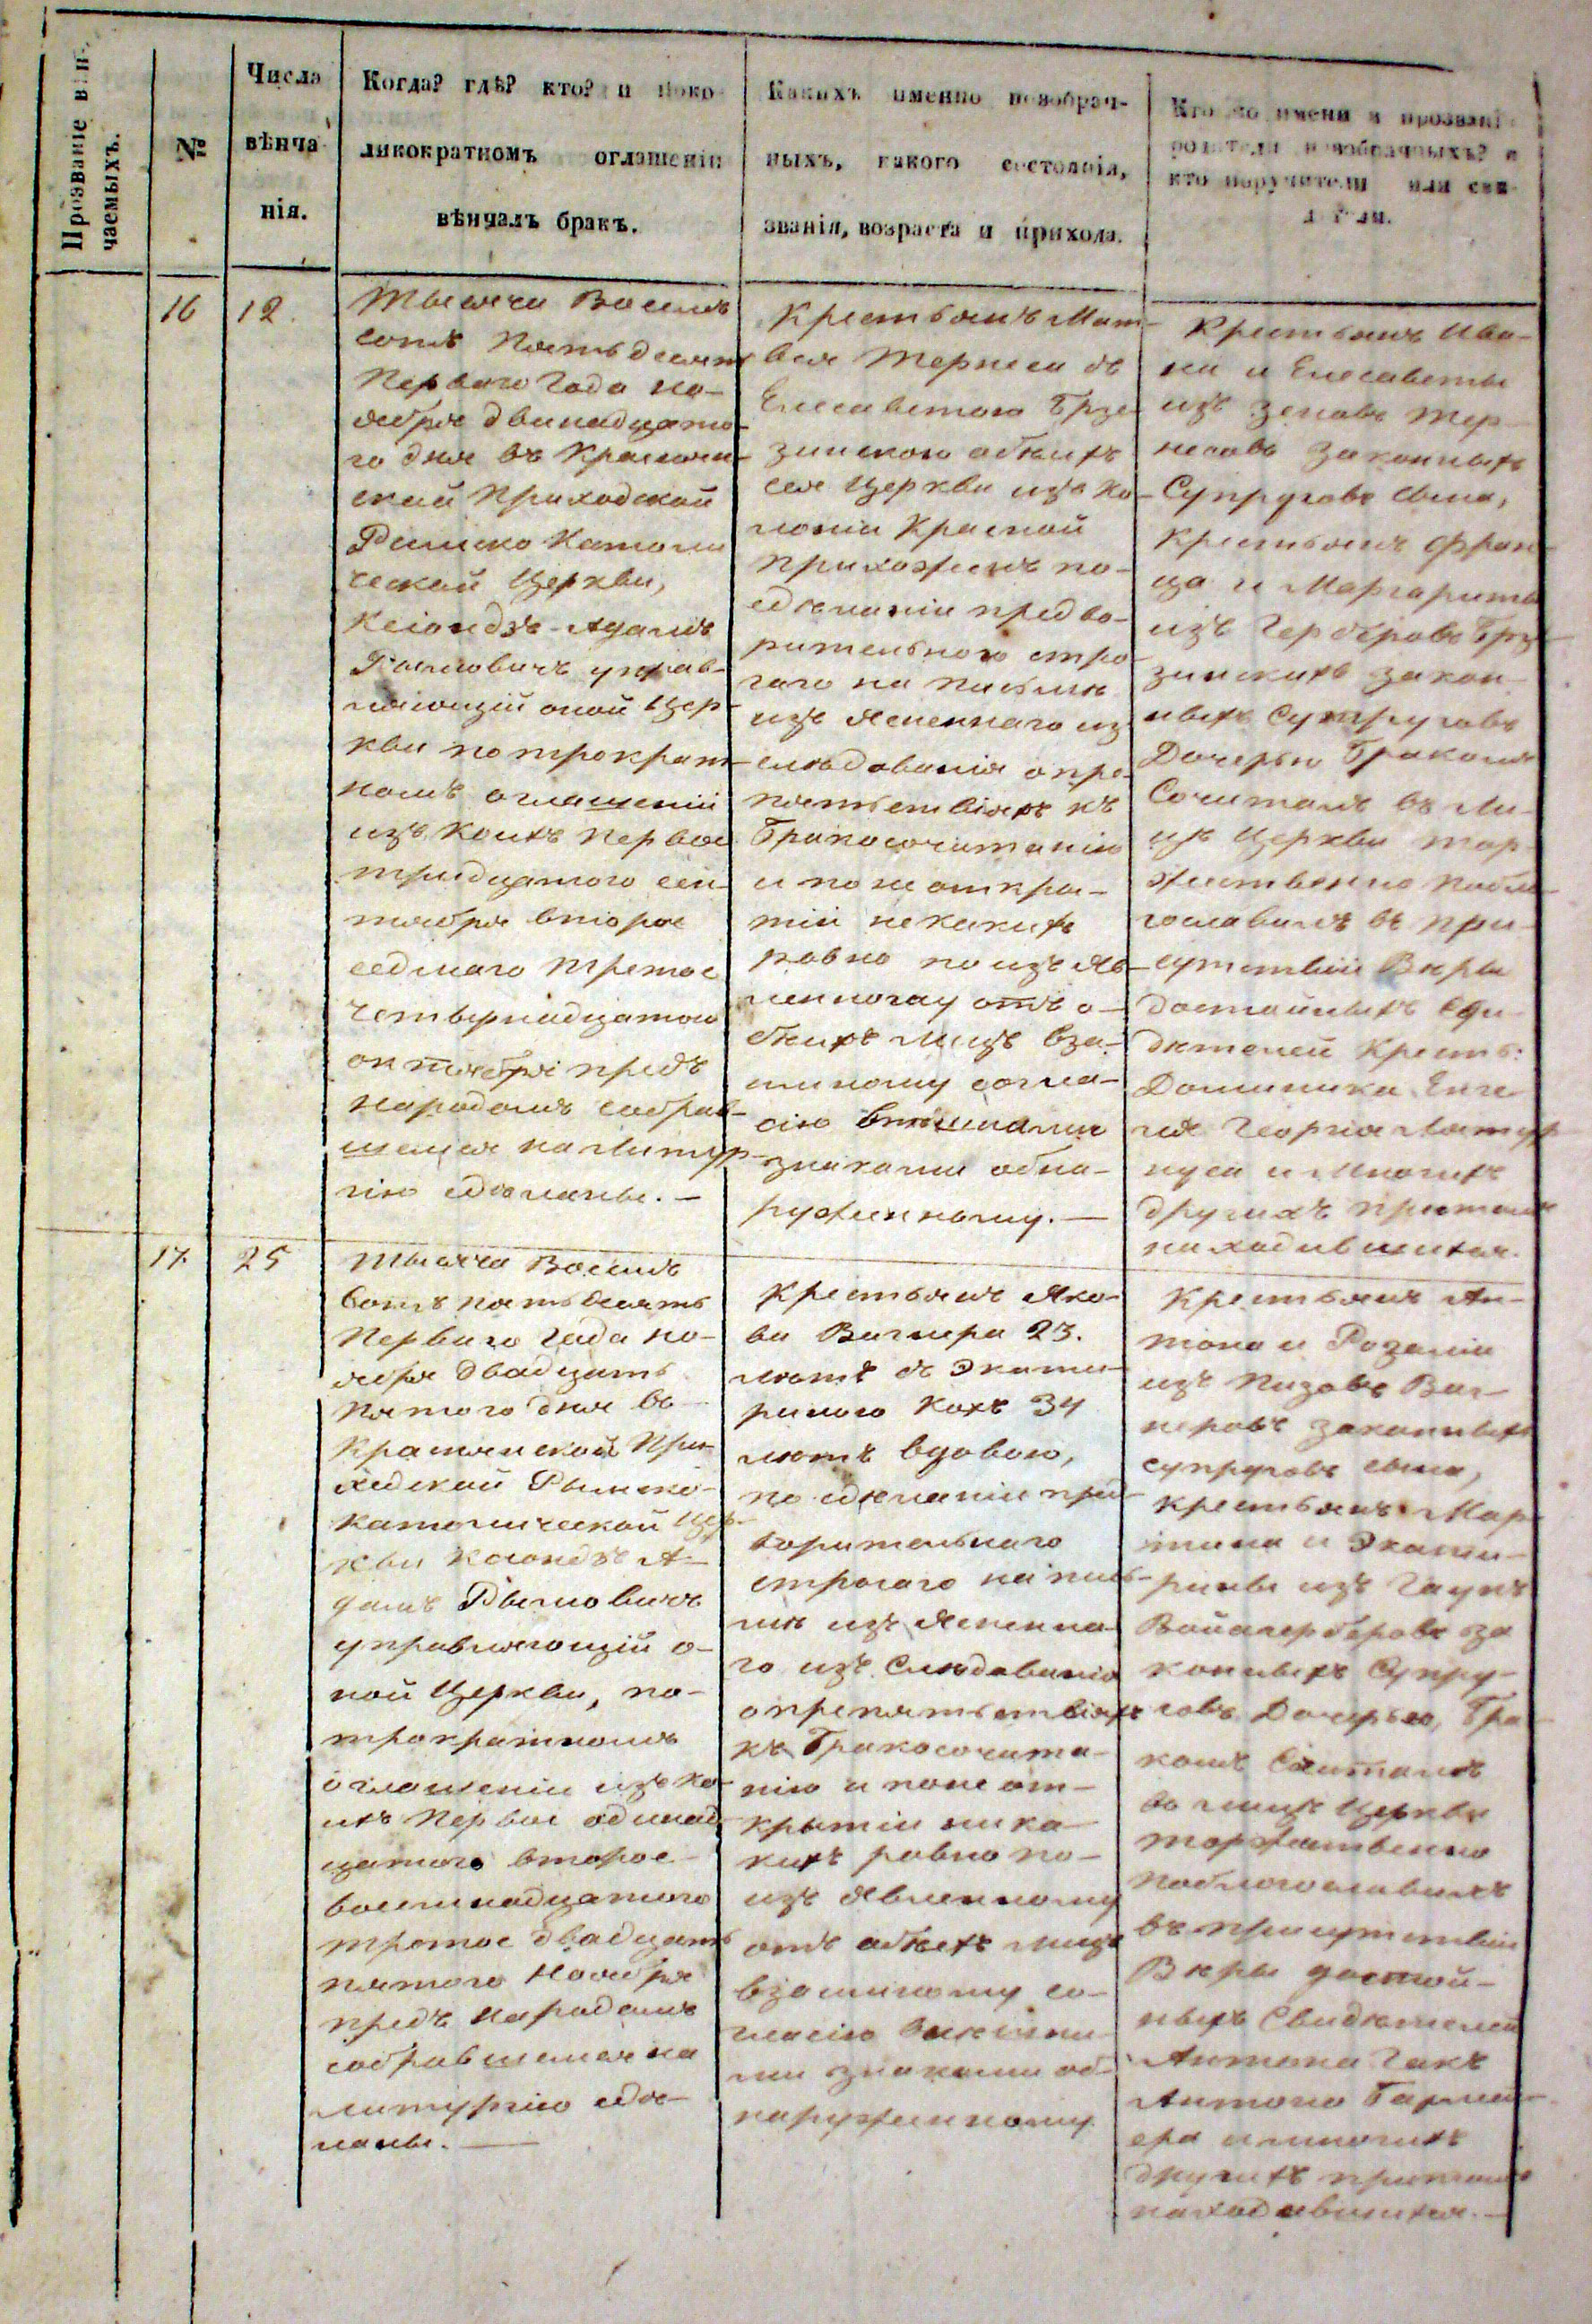 Прозваніе вѣн-
чаемыхъ.
№
Числа
вѣнча
нія.
Когда? гдѣ? кто? и поко
ликократномъ оглашеніи
вѣнчалъ бракъ.
Какихъ именно новобрач-
ныхъ, какого состоянія,
званія, возраста и прихода.
Кто по имени и прозванію
родители новобрачныхъ? и
кто поручители или сви
дѣтели.
16
12.
Тысяча Восемь
сотъ Пятьдесятъ
Перваго Года но-
ября двенадцато-
го дня въ Краснян-
ской Приходской
Римско Католи
ческой Церкви,
Ксіондзъ Адамъ
управ-
ляющій оной Цер-
кви по трократ-
номъ оглашеніи
изъ коихъ Первое
тридцатого сен-
тября второе
седмаго третое
четвернадцатого
октября предъ
народомъ собрав-
шемся на Литур-
гію сдѣланы. —
Крестьянъ Мат-
вея Тернеса съ
Елесаветою Брзе-
зинскою обѣихъ
сея Церкви изъ Ко-
лоніи Красной
прихожанъ по-
сдѣланіи предва-
рительного стро-
гаго на письмѣ
изъ ясненнаго из
слѣдованія опре-
пятствіяхъ къ
Бракосочитанію
и по не откры-
тіи некакихъ
равно по изъяв-
ленному отъ о-
бѣихъ лицъ вза-
имному согла-
сію внѣшними
знаками обна-
руженному. —
Крестьянъ Ива-
на и Елесаветы
изъ Тер-
несовъ законныхъ
Супруговъ Сына,
Крестьянъ Фран-
ца и Маргариты
изъ Герберовъ Брзе-
зинскихъ закон-
ныхъ Супруговъ
Дочерью Бракомъ
Сочиталъ въ Ли-
цѣ Церкви тор-
жественно побла-
гославилъ въ при-
сутствіи Вѣры
достойныхъ Сви-
дѣтелей Крестъ:
Доминика Енге
ля Георгія
и Многихъ
другихъ притомъ
находившихся.
17.
25
Тысяча Восемь
сотъ пятьдесятъ
Перваго Года но-
ября двадцать
пятого дня въ
Краснянской При-
ходской Римско-
католической Цер-
кви Ксіондзъ А-
дамъ
управляющій о-
ной Церкви, по-
трократномъ
оглашеніи изъ ко-
ихъ Первое одинад
цатого второе
восемнадцатого
третое двадцать
пятого Ноября
предъ народомъ
собравшемся на
литургію сдѣ-
ланы. —
Крестьянъ Яко-
ва Вагнера 23.
лѣтъ съ Экате-
риною Кохъ 34
лѣтъ вдовою,
по сдѣланіи пред-
варительнаго
строгаго на пись-
мѣ изъ ясненна-
го изъ Слѣдованія
опрепятствіяхъ
къ Бракосочита-
нію и поне от-
крытіи ника-
кихъ равно по-
изъ явленному
отъ обѣихъ лицъ
взаимному со-
гласію внѣшни-
ми знаками об-
наруженному
Крестьянъ Ан-
тона и Розаліи
изъ Ваг-
неровъ законныхъ
супруговъ сына,
Крестьянъ Мар-
тина и Экате-
рины изъ
за
конныхъ Супру-
говъ Дочерью, Бра-
комъ Сочиталъ
въ лицѣ Церкви
торжественно
поблогославилъ
въ присутствіи
Вѣры достой-
ныхъ Свидѣтелей
Антона Гакъ
Антона
ера и многихъ
другихъ притомъ
находившихся. —